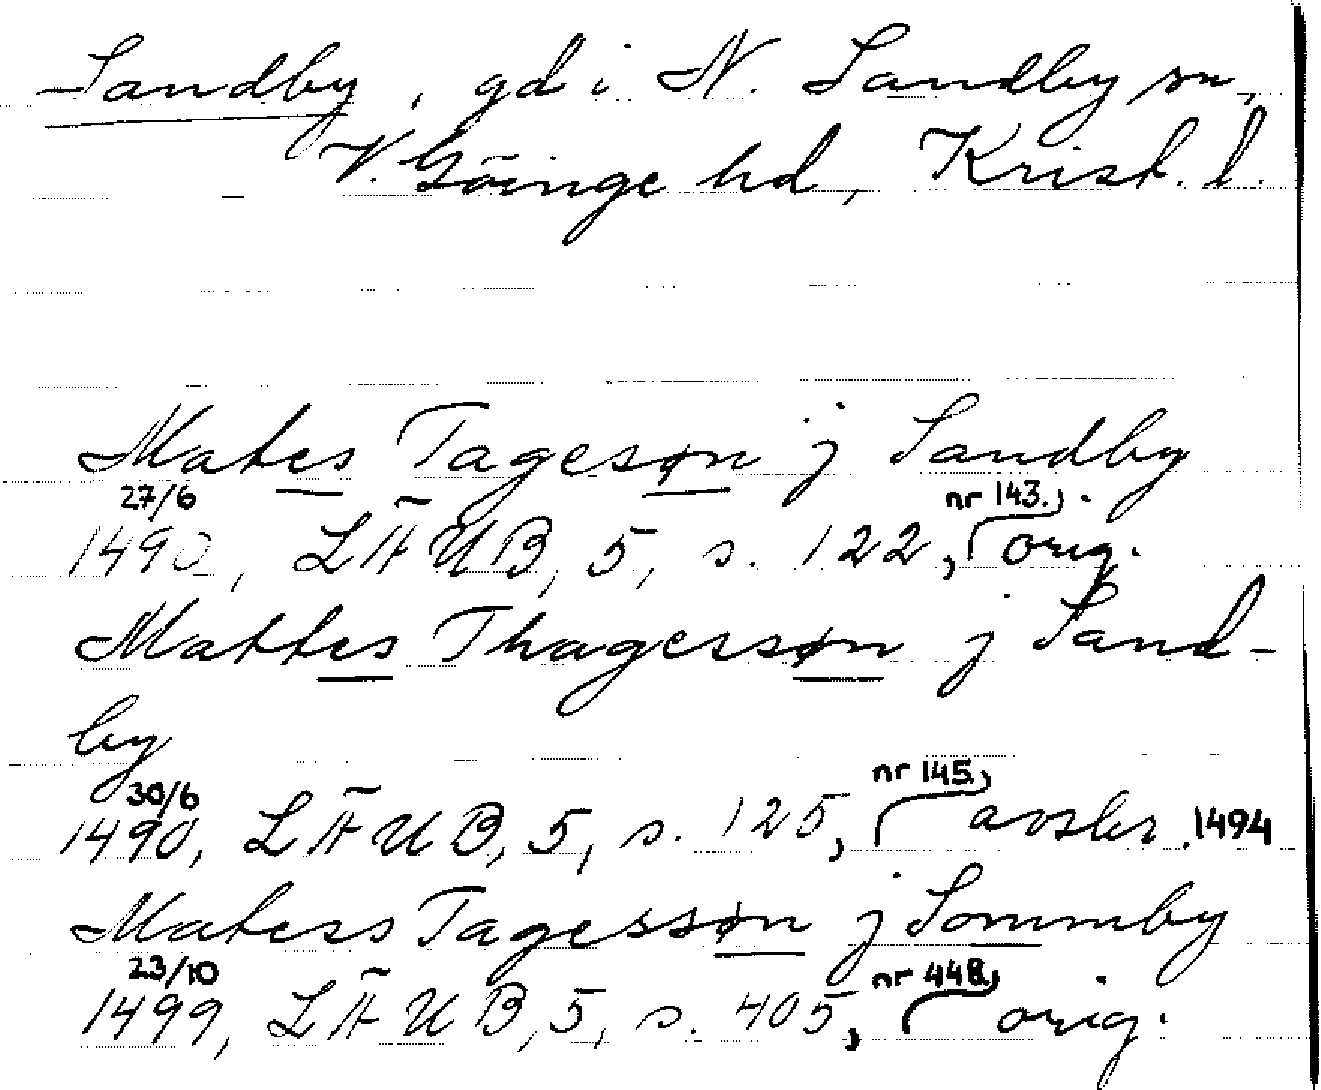 Sandby, gd i N. Sandby sn,
V. Göinge hd, Krist. l.
Mates Tagesøn j Sandby
27/6 nr 143.,
1490, LÄUB, 5, s. 122, orig.
Mattes Thagerssøn j Sand-
by
30/6 nr 145,
1490, LÄUB, 5, s. 125, avskr. 1494
Matess Tagessøn j Sommby
23/10 nr 448,
1499, LÄUB, 5, s. 405, orig.